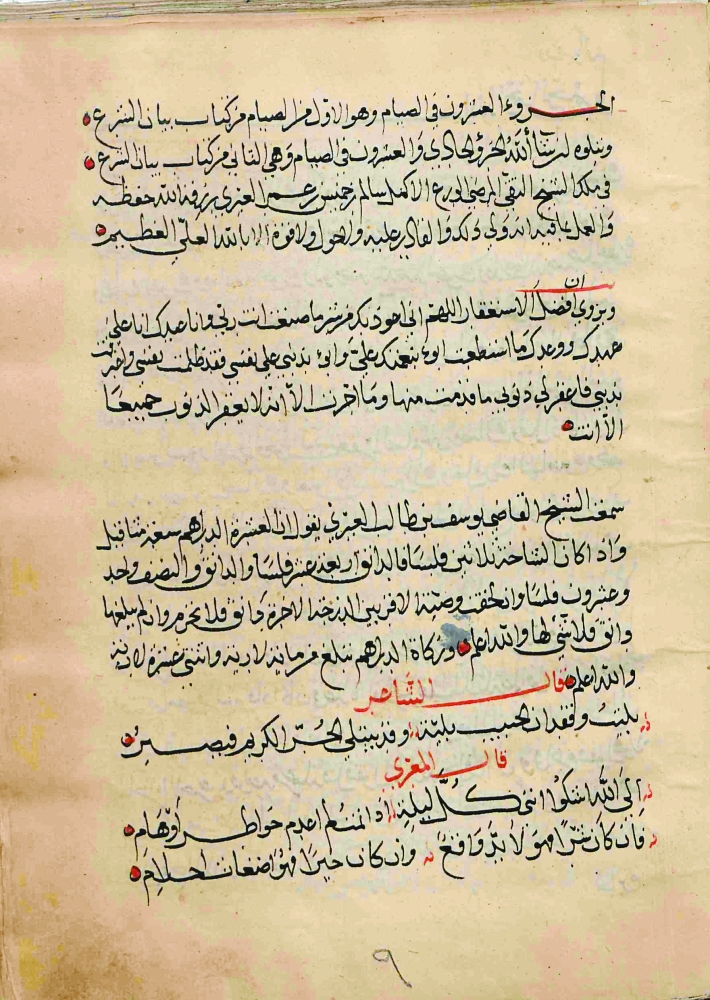 الجزؤ العشرون في الصيام وهو الاول من الصيام من كتاب بيان الشرع
ويتلوه ان شاء الله الجزؤ الحادي والعشرون في الصيام وهي الثاني من كتاب بيان الشرع
في ملك الشيخ التقي الرضي الورع الاكمل سالم بن خميس بن عمر العبري رزقه الله حفظه
والعمل بما فيه انه ولي ذلك والقادر عليه ولا حول ولا قوة الا بالله العلي العظيم
ويروى ان افضل الاستغفار اللهم اني اعوذ بك من شر ما صنعت انت ربي وانا عبدك انا على
عهدك ووعدك ما استطعت ابوء بنعمتك علي وابوء بذنبي على نفسي فقد ظلمت نفسي واعترفت
بذنبي فاغفر لي ذنوبي ما قدمت منها وما اخرت الا انه لا يغفر الذنوب جميعا
الا انت
سمعت الشيخ القاضي يوسف بن طالب العبري يقول ان العشرة الدراهم سبعة مثاقيل
واذا كان الشاخة ثلاثين فلسا فالدانق اربعة عشر فلسا والدانق والنصف واحد
وعشرون فلسا وان لحقت وصية الاقربين الدرجة الاخرة دانق فلا تحرم وان لم يبلغها
دانق فلا شيء لها والله اعلم وزكاة الدراهم تبلغ من مائة لارية واثنتي عشرة لارية
والله اعلم قال الشاعر
بليت وفقدان الحبيب بلية وقد يبتلى الحر الكريم فيصبر
قال المغري
الى الله اشكوا انني كل ليلة اذا نمت لم اعدم خواطر اوهام
فان كان شرا فهو لا بد واقع وان كان خيرا فهو اضغاث احلام